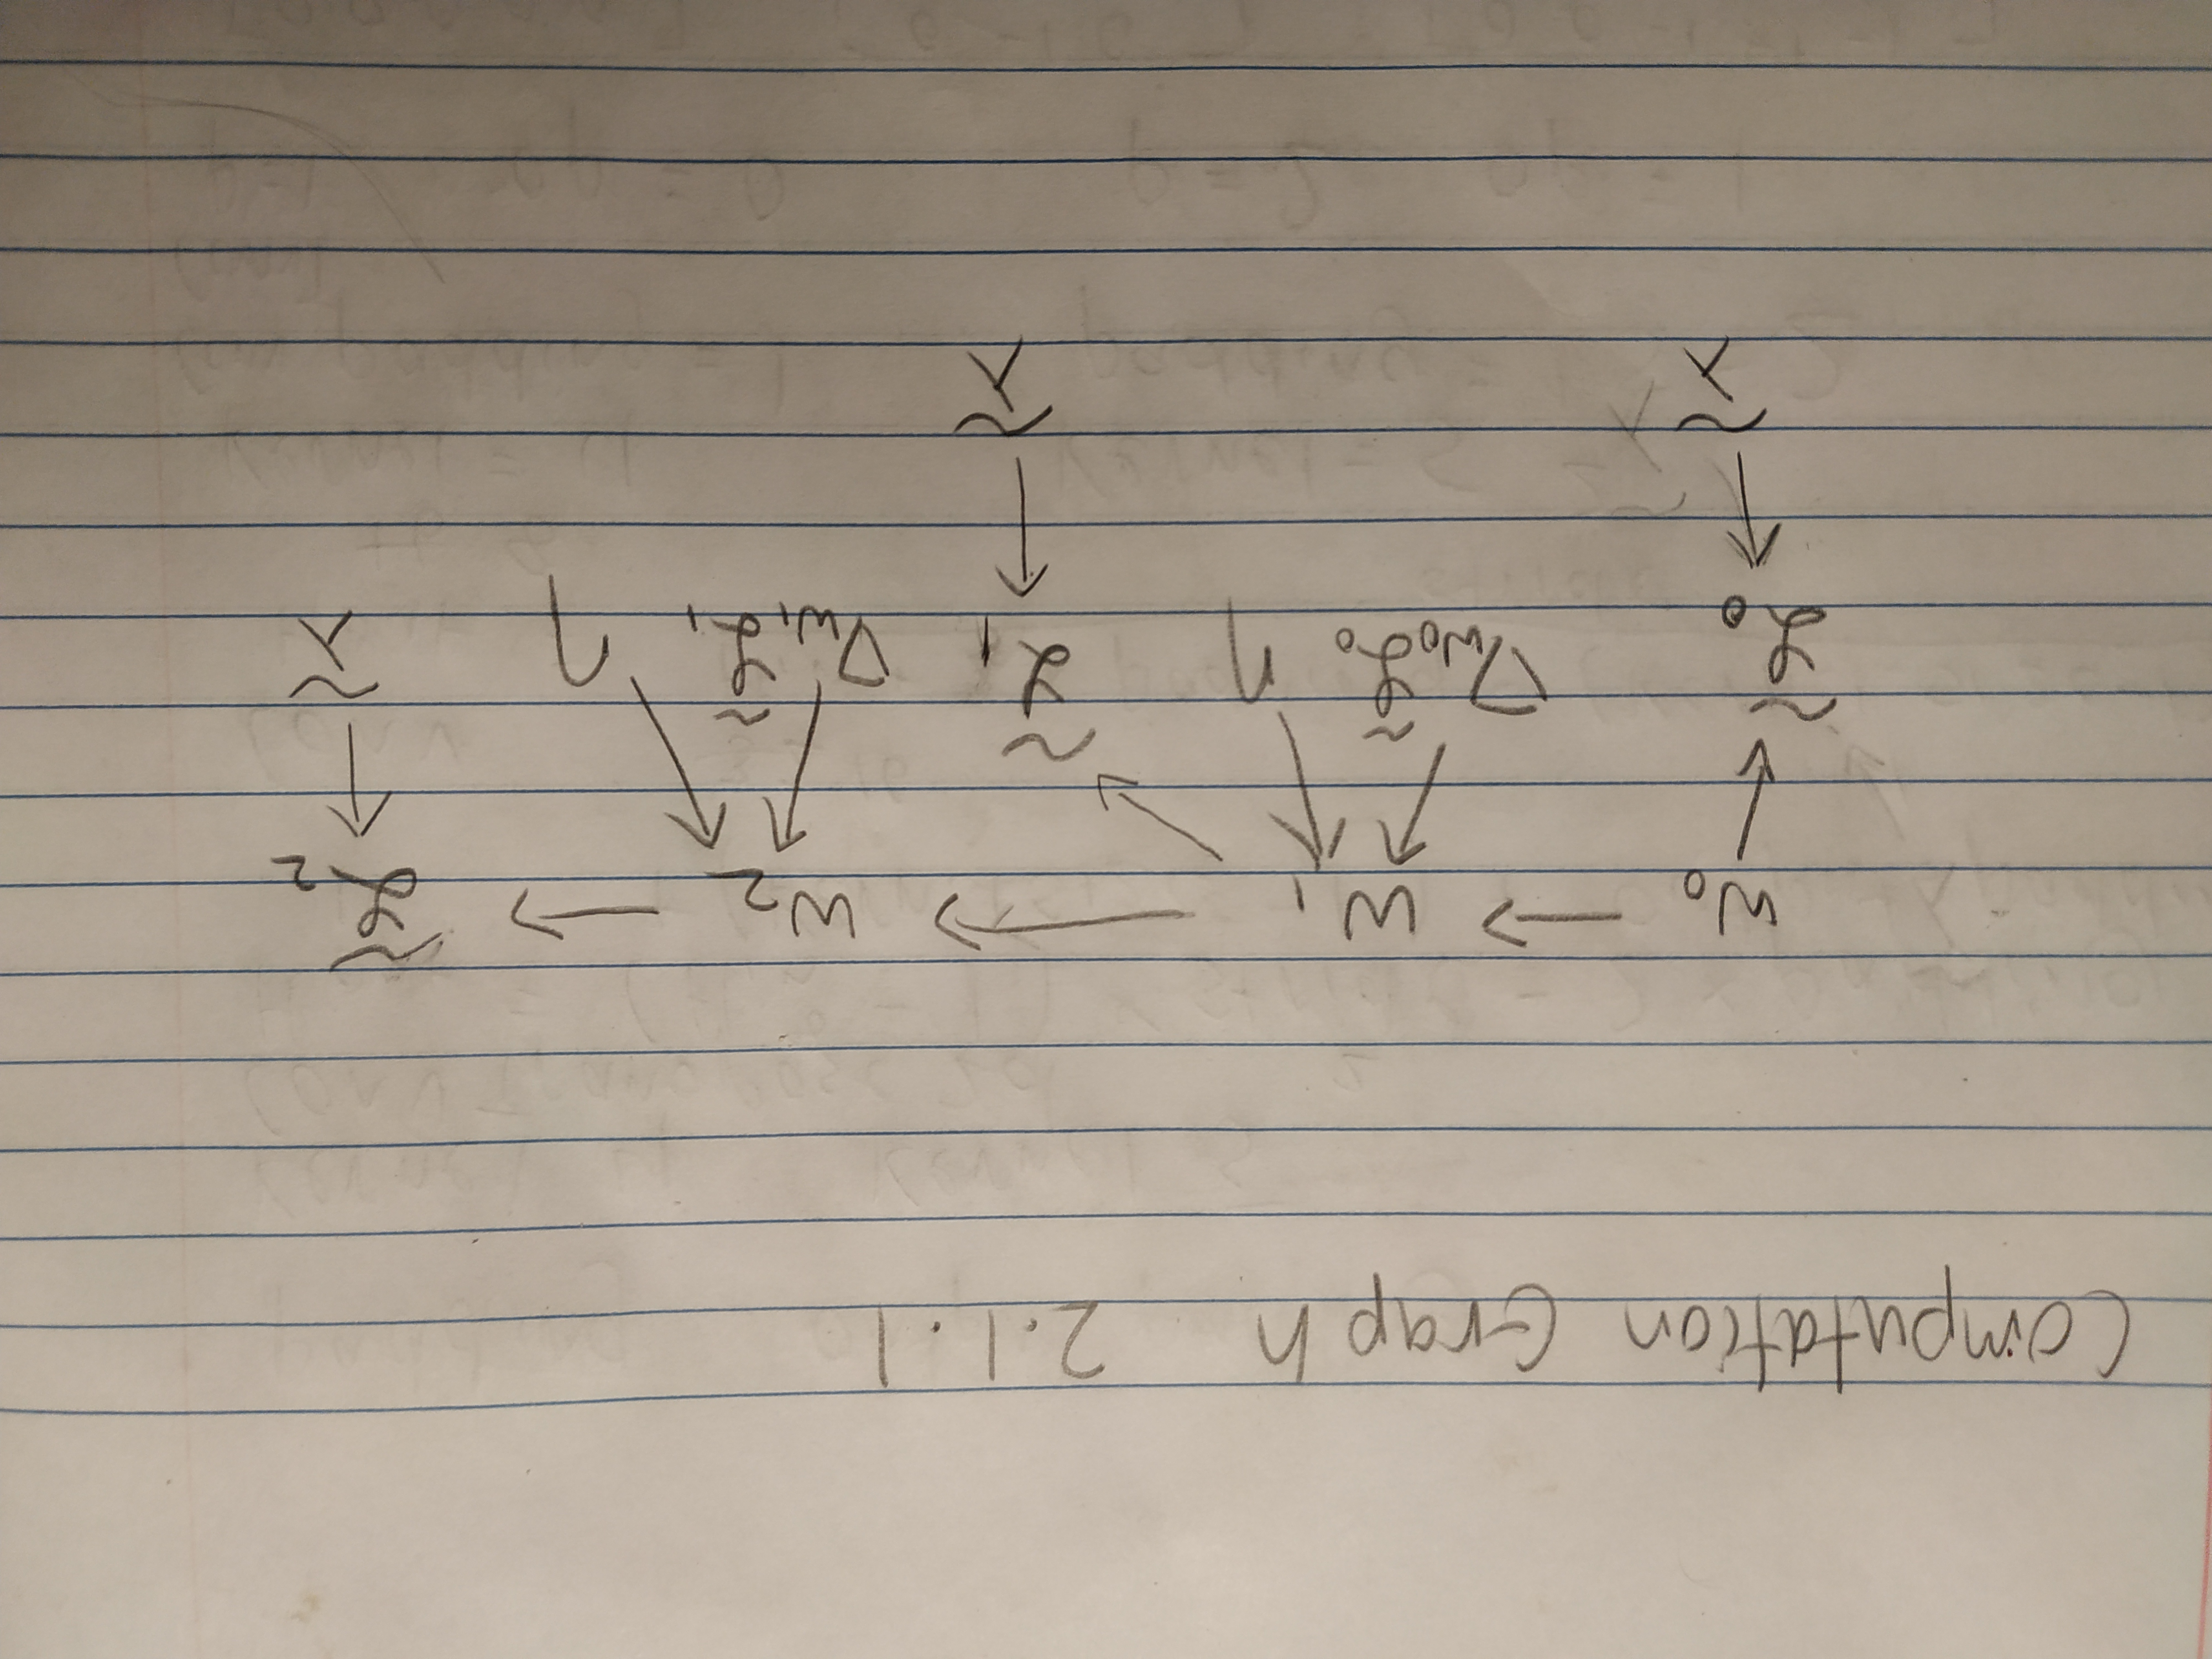 Computation Graph 2.1.1
w₀ → w₁ → w₂ → ℒ̃₂
ℒ̃₀ ∇w₀ℒ̃₀ η ℒ̃₁ ∇w₁ℒ̃₁ η λ̃
λ̃ λ̃